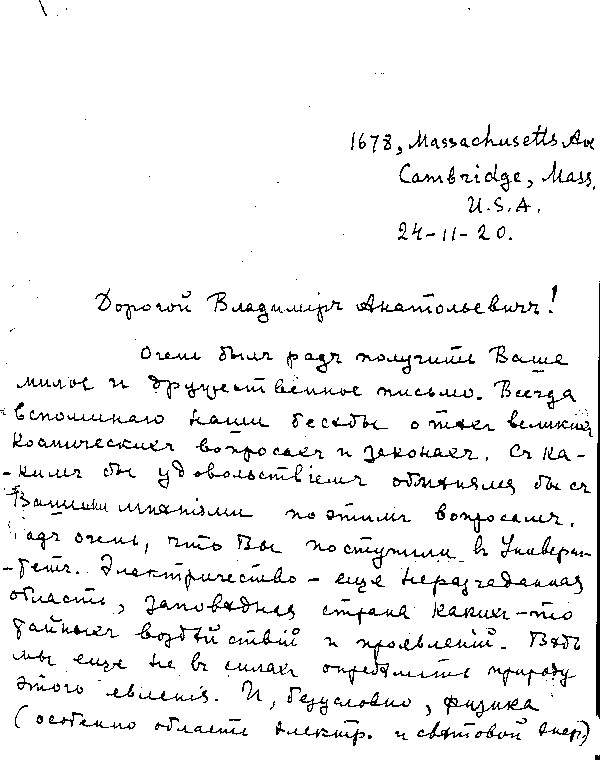 1678, Massachusetts Ave
Cambridge, Mass.
U.S.A.
24-11-20.
Дорогой Владимиръ Анатольевичъ!
Очень былъ радъ получить Ваше
милое и дружественное письмо. Всегда
вспоминаю наши бесѣды о тѣхъ великихъ
космическихъ вопросахъ и законахъ. Съ ка-
-кимъ бы удовольствіемъ обмѣнялся бы съ
Вашими мнѣніями по этимъ вопросамъ.
Радъ очень, что Вы поступили въ Универси-
-тетъ. Электричество – еще неразгаданная
область, заповѣдная страна какихъ-то
тайныхъ воздѣйствій и проявленій. Вѣдь
мы еще не въ силахъ опредѣлить природу
этого явленія. И, безусловно, физика
(особенно область электр. и свѣтовой энер.)